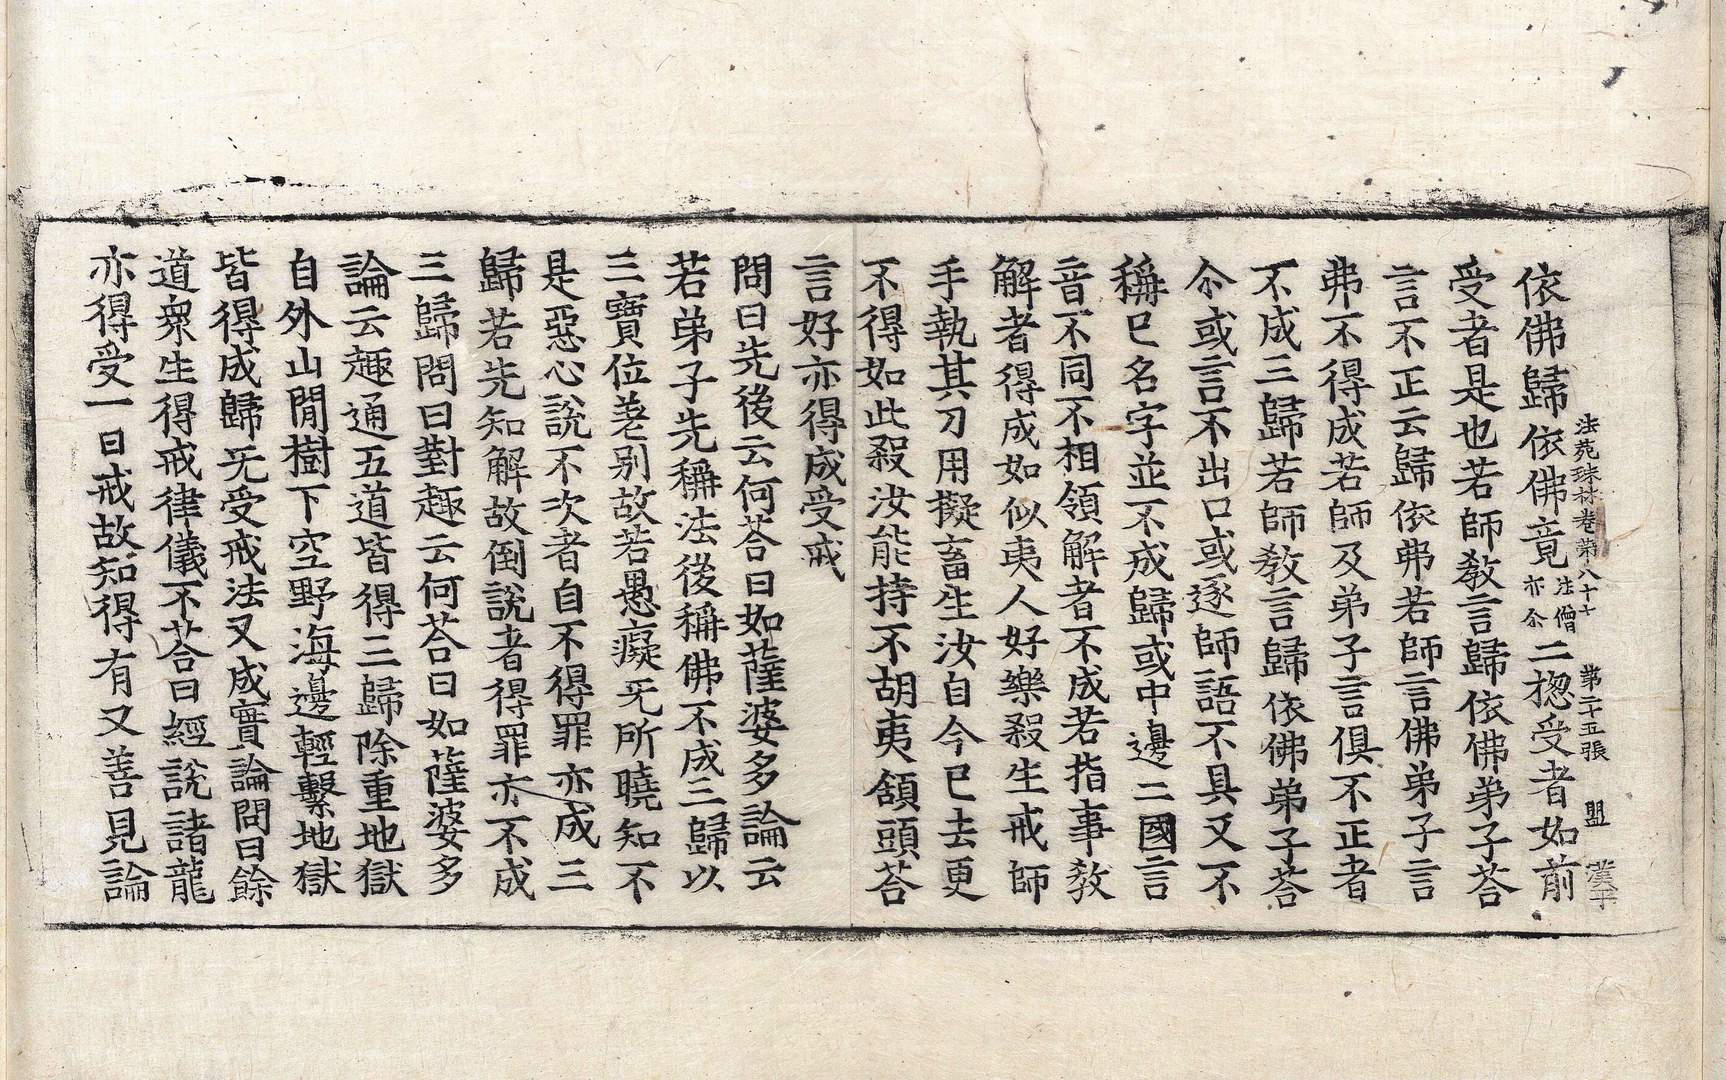 法苑珠林卷第八十七 第二十五張 盟 漢平
依佛歸依佛竟法僧亦尒二揔受者如前
受者是也若師教言歸依佛弟子荅
言不正云歸依弗若師言佛弟子言
弗不得成若師及弟子言俱不正者
不成三歸若師教言歸依佛弟子荅
尒或言不出口或逐師語不具又不
稱已名字並不成歸或中邊二國言
音不同不相領解者不成若指事教
解者得成如似夷人好樂殺生戒師
手執其刀用擬畜生汝自今已去更
不得如此殺汝能持不胡夷頷頭荅
言好亦得成受戒
問曰先後云何荅曰如薩婆多論云
若弟子先稱法後稱佛不成三歸以
三寶位差别故若愚癡无所曉知不
是惡心說不次者自不得罪亦成三
歸若先知解故倒說者得罪亦不成
三歸問曰對趣云何荅曰如薩婆多
論云趣通五道皆得三歸除重地獄
自外山閒樹下空野海邊輕繫地獄
皆得成歸无受戒法又成實論問曰餘
道衆生得戒律儀不荅曰經說諸龍
亦得受一日戒故知得有又善見論